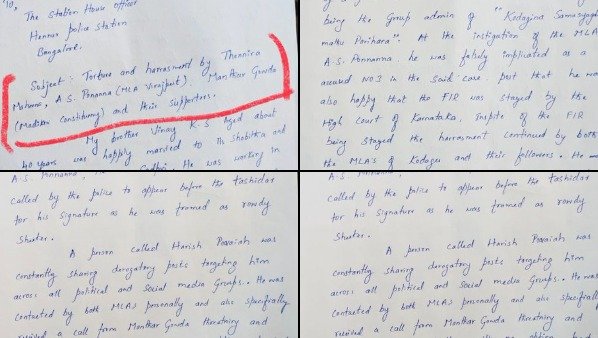 To,
The Station House Officer
Hennur police Station
Bangalore.
Subject: Torture and harrasment by Thennira
Mahene, A.S. Ponnanna (MLA Virajpet). Manthar Gowda
(Madikeri Constituency) and their Supporters.
My brother Vinay K.S Aged about
40 years was happily married to
He was working in
being the Group admin of "Kodagina Samasyagala
mattu Parihara". At the instigation of the MLA
A.S. Ponnanna. he was falsely implicated as a
accused No3 in the Said case. post that he was
also happy that the FIR was Stayed by the
High Court of Karnataka, inspite of the FIR
being Stayed the harrasment continued by both
the MLA's of Kodagu and their followers. He
A.S. Ponnanna.
called by the police to appear before the tashildar
for his Signature as he was framed as rowdy
Sheeter..
A person called Harish Poovaiah was
constantly sharing derogatory posts targeting him
across all political and Social media Groups.. He was
contacted by both MLAs personally and also Specifically
received a call from Monthar Gowda threatning and
called by the police to appear before the tashildar
for his Signature as he was framed as rowdy
Sheeter..
A person called Harish Poovaiah was
constantly sharing derogatory posts targeting him
across all political and Social media Groups.. He was
contacted by both MLAs personally and also Specifically
received a call from Monthar Gowda threatning and